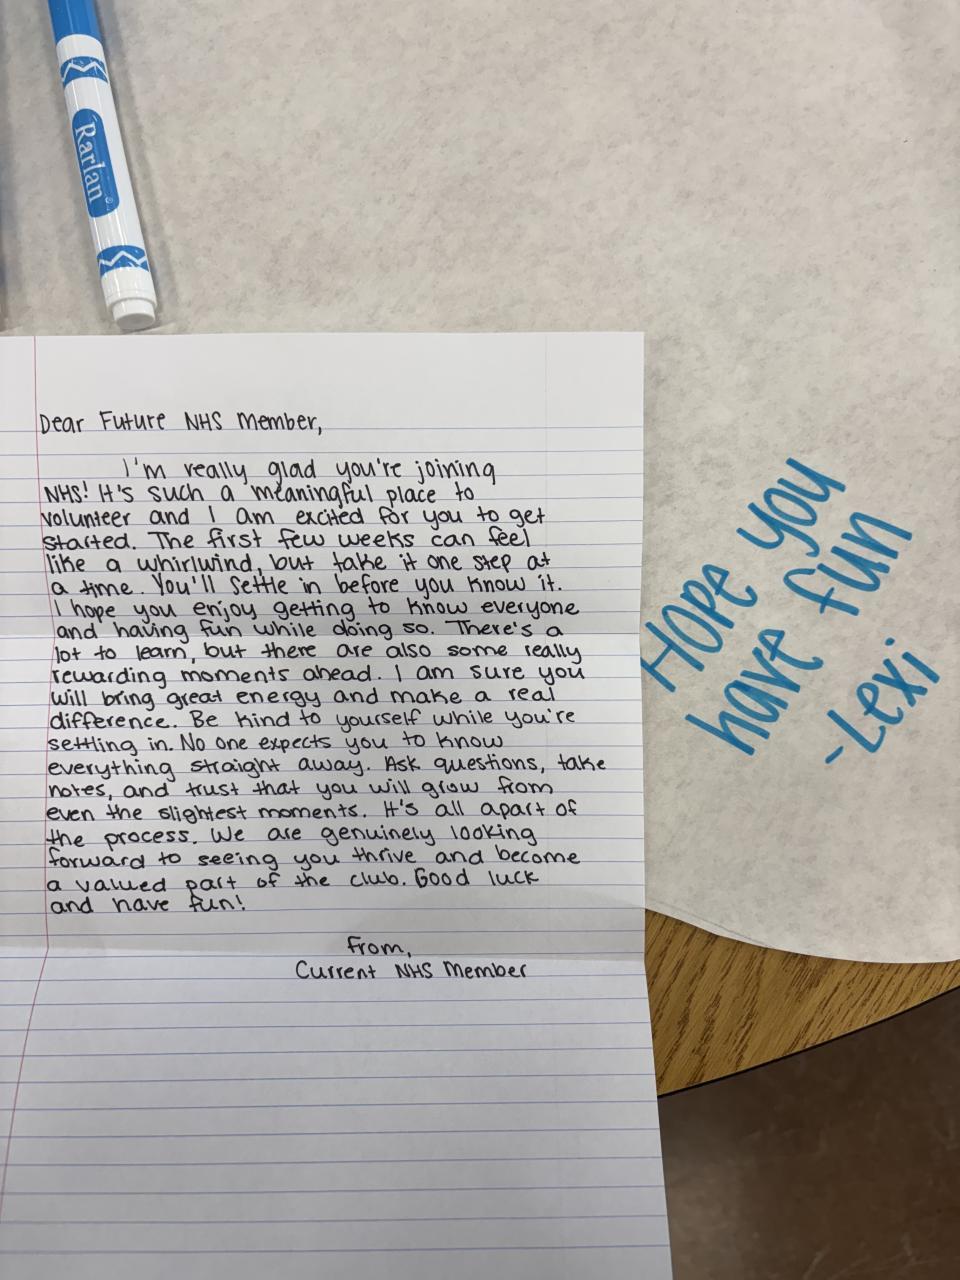 Rarlan
Dear Future NHS Member,
I'm really glad you're joining
NHS! It's such a meaningful place to
volunteer and I am excited for you to get
started. The first few weeks can feel
like a whirlwind, but take it one step at
a time. You'll settle in before you know it.
I hope you enjoy getting to know everyone
and having fun while doing so. There's a
lot to learn, but there are also some really
rewarding moments ahead. I am sure you
will bring great energy and make a real
difference. Be kind to yourself while you're
settling in. No one expects you to know
everything straight away. Ask questions, take
notes, and trust that you will grow from
even the slightest moments. It's all apart of
the process. We are genuinely looking
forward to seeing you thrive and become
a valued part of the club. Good luck
and have fun!
From,
Current NHS Member
Hope you
have fun
-Lexi